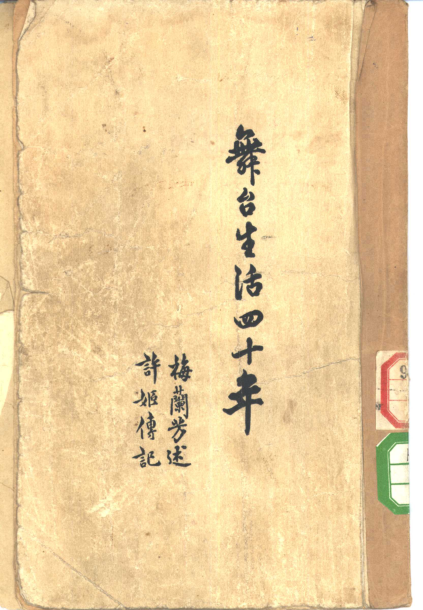 舞台生活四十年
梅蘭芳述
許姬傳記
9